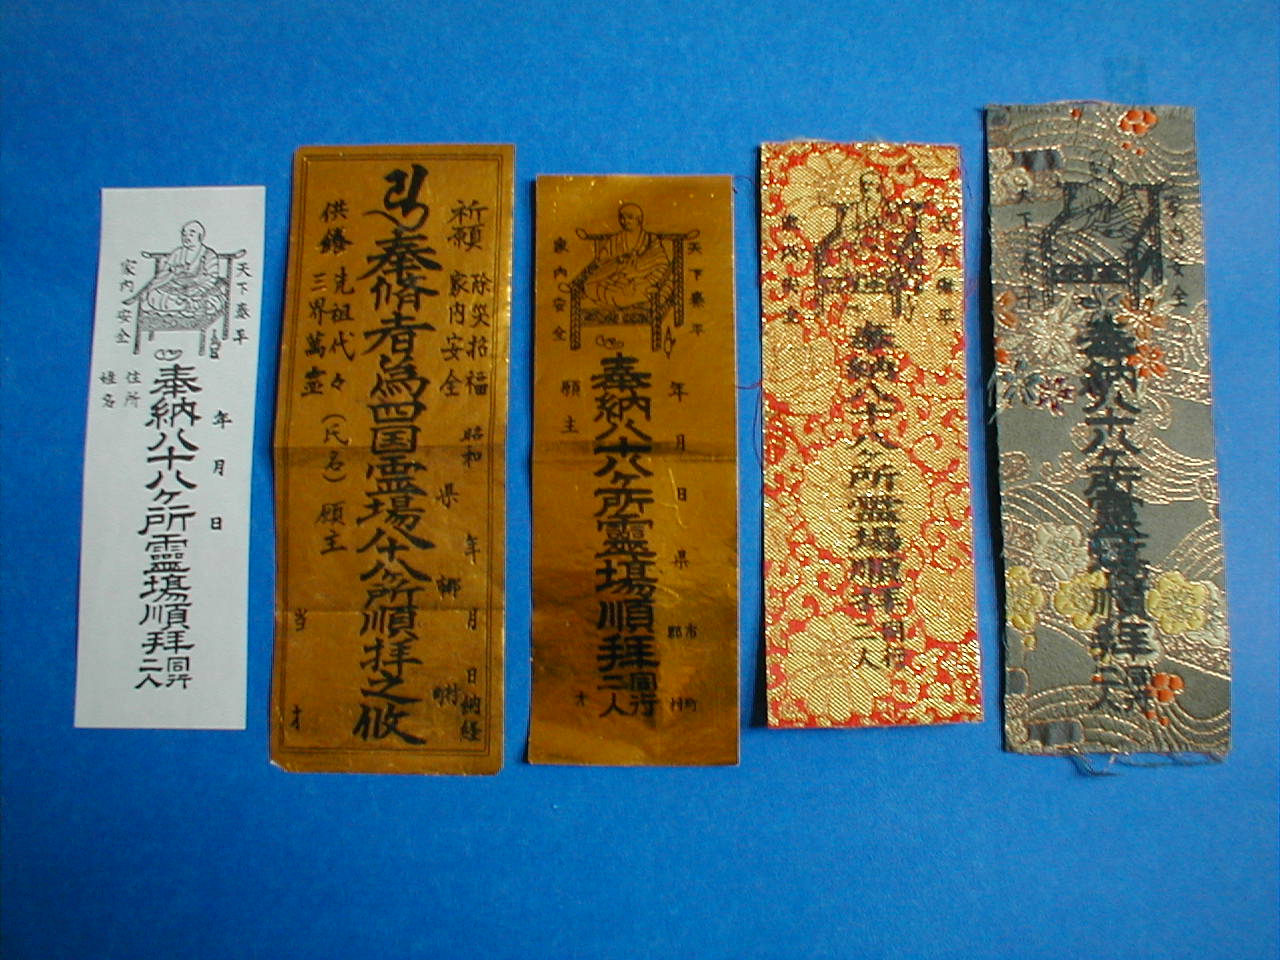 天下泰平
家内安全
年 月 日
奉納八十八ヶ所霊場順拝
同行
二人
住所
姓名
祈願
除災招福
家内安全
昭和 年 月 日納経
県 郷 町村
奉脩者為四国霊場八十八ヶ所順拝之攸
供
先祖代々
三界萬霊
(氏名)願主
当 才
天下泰平
家内安全
年 月 日 県 市郡 町村
奉納八十八ヶ所霊場順拝
同行
二人
願主
才
天下泰平
家内安全
奉納八十八ヶ所霊場順拝
同行
二人
家内安全
天下泰平
奉納八十八ヶ所霊場順拝
同行
二人